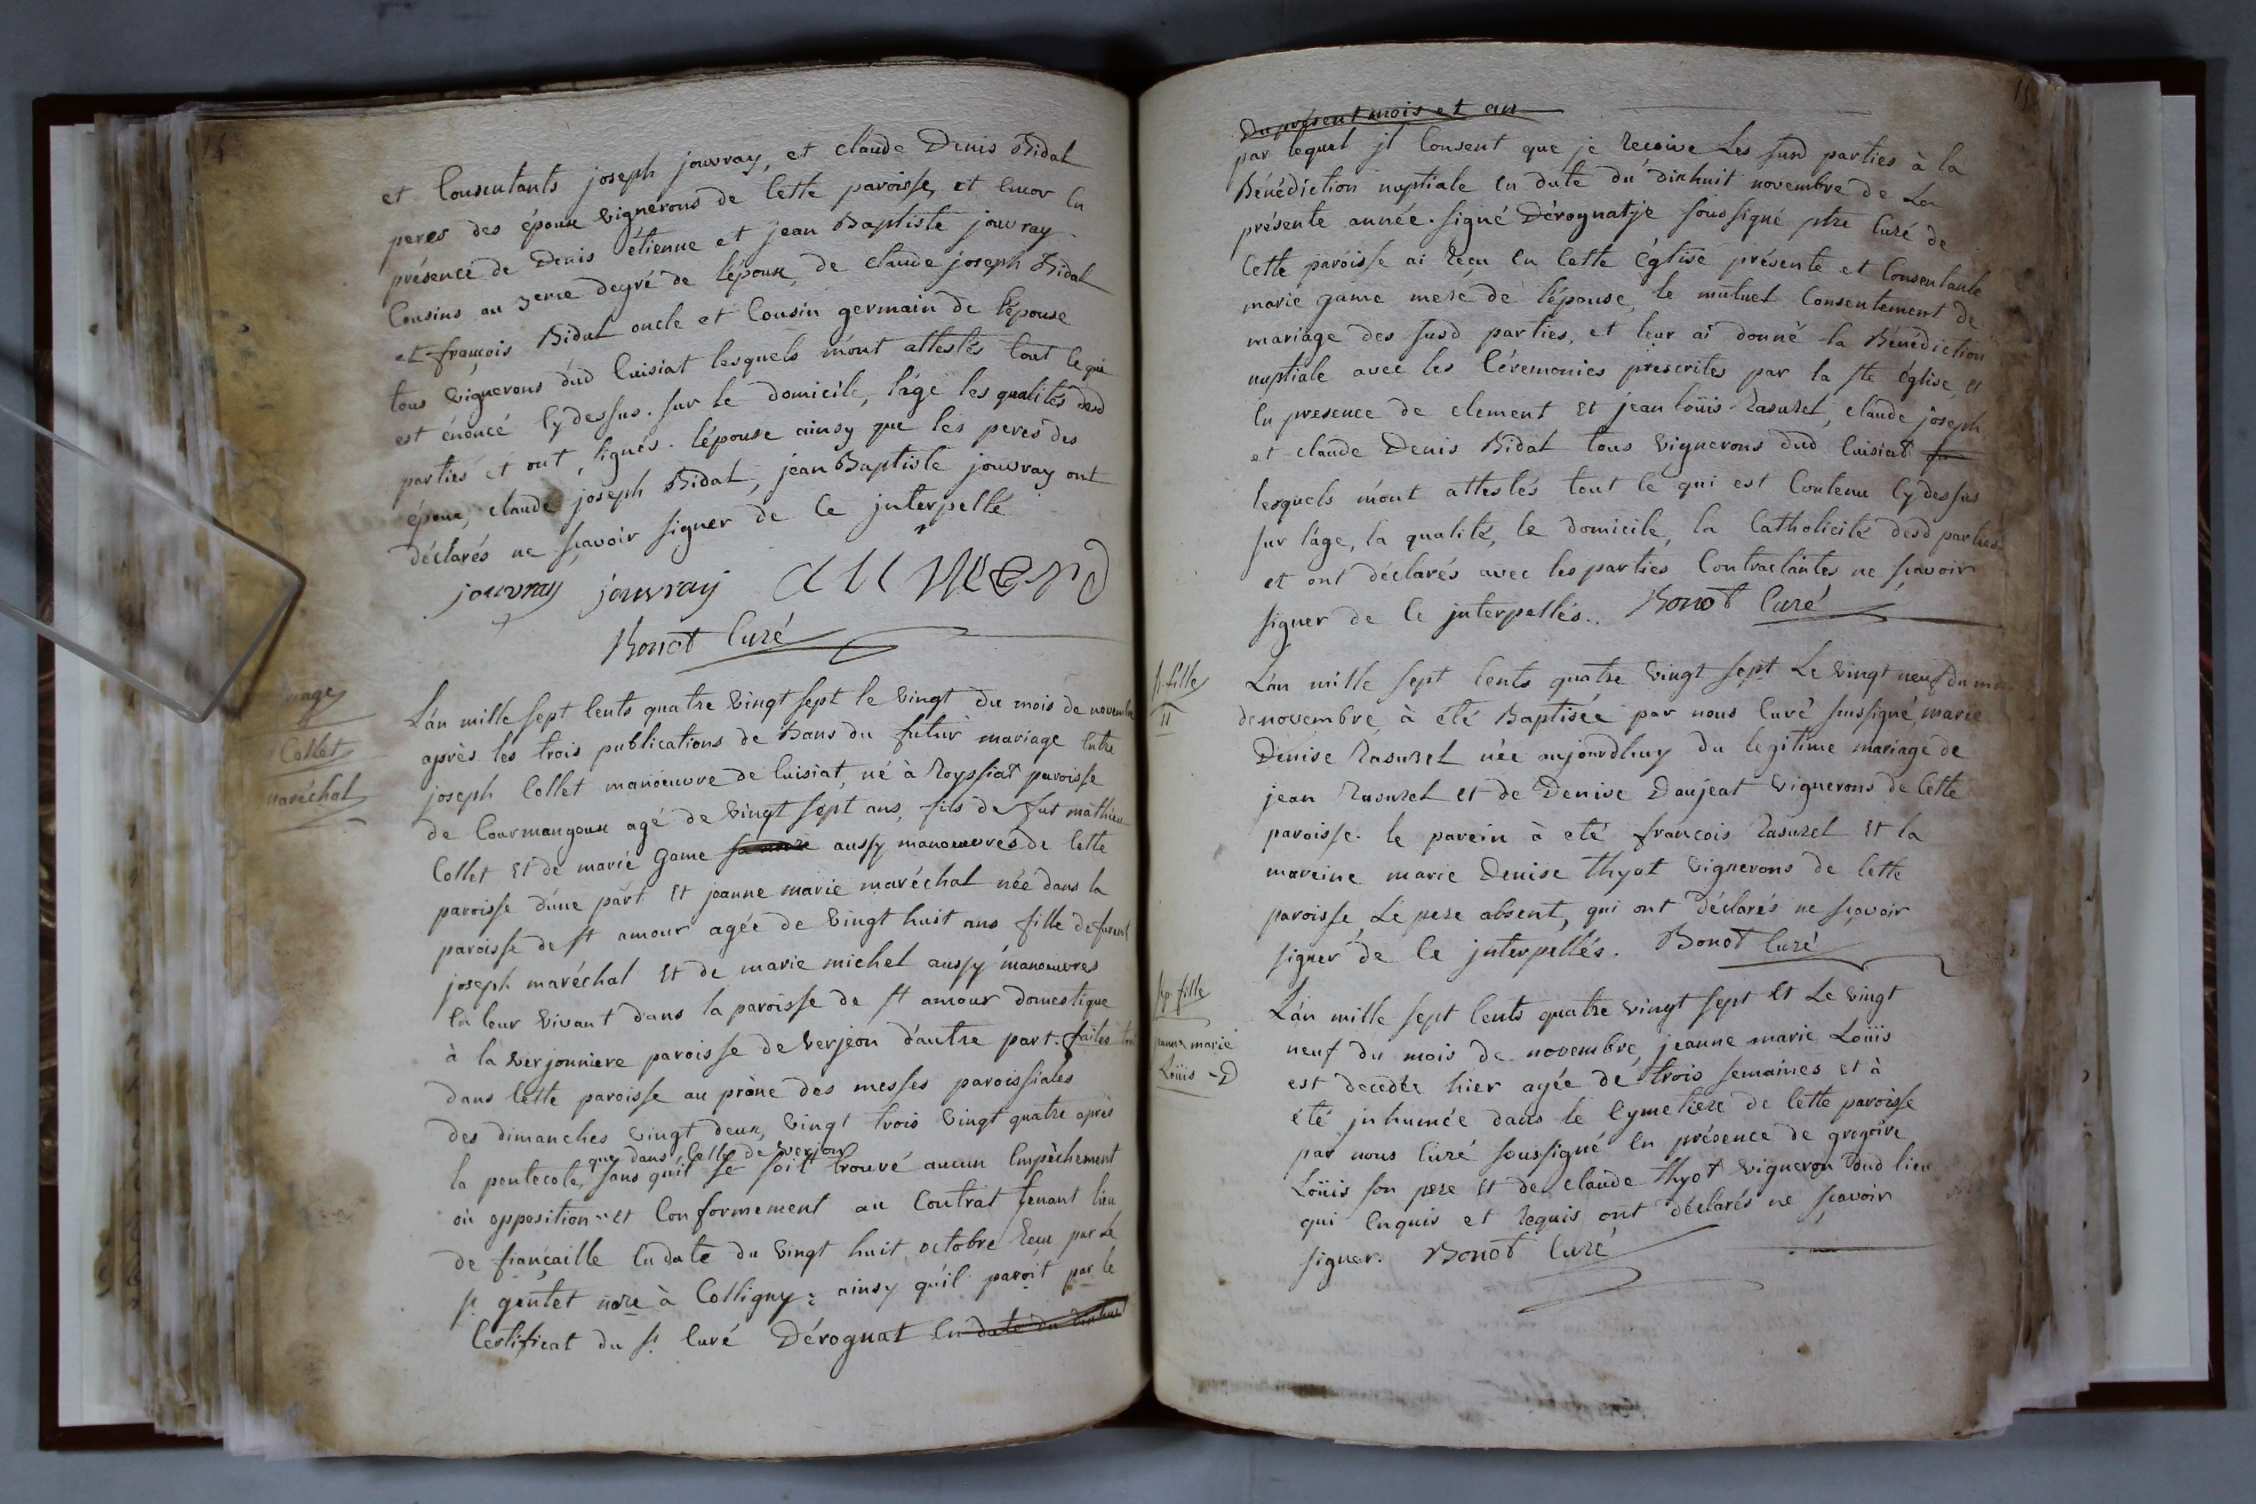 et Consentants joseph jouvray, et claude Denis Bidal
peres des époux vignerons de Cette paroisse, et encor en
présence de Denis étienne et jean Baptiste jouvray
Cousins au 3eme degré de l'époux, de claude joseph Bidal
et françois Bidal oncle et Cousin germain de l'épouse
tous vignerons dud Cuisiat lesquels m'ont attestés tout ce qui
est énoncé Cydessus. sur le domicile, l'age les qualités desd
parties et ont signés. l'épouse ainsy que les peres des
époux, claude joseph Bidal, jean Baptiste jouvray ont
déclarés ne sçavoir signer de Ce jnterpellé
jouvray jouvray
Bonot Curé
Collet
maréchal
L'an mille sept Cents quatre vingt sept le vingt du mois de novembre
après les trois publications de Bans du futur mariage Entre
joseph Collet manoeuvre de Cuisiat, né à Royssiat paroisse
de Courmangoux agé de vingt sept ans, fils de fut mathieu
Collet et de marie Game aussy manoeuvres de Cette
paroisse d'une part et jeanne marie maréchal née dans la
paroisse de st amour agée de vingt huit ans fille de furent
joseph maréchal et de marie michel aussy manoeuvres
En leur vivant dans la paroisse de st amour domestique
à la verjonniere paroisse de verjeon d'autre part. faites tant
dans Cette paroisse au prône des messes paroissiales
des dimanches vingt deux, vingt trois vingt quatre après
que dans Celle de verjon
la pentecote, sans qu'il se soit trouvé aucun Empêchement
où opposition et Conformement au Contrat tenant lieu
de fiançaille En date du vingt huit octobre Recu par Le
sr. gentet nore à Colligny: ainsy qu'il paroit par le
Certificat du sr. Curé Dérognat En date du dixhuit
Du présent mois et an
par lequel jl Consent que je Recoive Les susd parties à la
Bénédiction nuptiale en date du dixhuit novembre de La
présente année. signé Dérognat je soussigné ptre Curé de
Cette paroisse ai Reçu En Cette Église présente et Consentante
marie game mere de l'épouse, le mutuel Consentement de
mariage des susd parties, et leur ai donné la Bénédiction
nuptiale avec les Céremonies prescrites par la ste église, et
En presence de clement et jean loüis Rasurel, claude joseph
et claude Denis Bidal tous vignerons dud Cuisiat
lesquels m'ont attestés tout Ce qui est Contenu Cydessus
sur l'age, la qualité, le domicile, la Catholicité desd parties
et ont déclarés avec les parties Contractantes ne sçavoir
signer de Ce jnterpellés. Bonot Curé
fille
11
L'an mille sept Cents quatre vingt sept Le vingt neuf du mois
de novembre à été Baptisée par nous Curé soussigné, marie
Denise Rasurel née aujourdhuy du legitime mariage de
jean Rasurel et de Denise Daujeat vignerons de Cette
paroisse. le parein à eté françois Rasurel et la
mareine marie Denise thyot vignerons de Cette
paroisse, Le pere absent, qui ont déclarés ne sçavoir
signer de Ce jnterpellés. Bonot Curé
sp. fille
jeanne marie
Loüis - D
L'an mille sept Cents quatre vingt sept Et Le vingt
neuf du mois de novembre, jeanne marie Loüis
est decedée hier agée de trois semaines et à
été jnhumée dans le Cymetiere de Cette paroisse
par nous Curé soussigné En présence de gregoire
Loüis son pere et de claude thyot vigneron dud lieu
qui Enquis et Requis ont déclarés ne sçavoir
signer. Bonot Curé